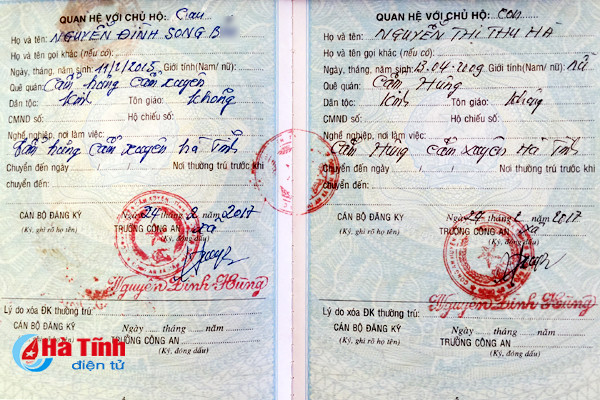 QUAN HỆ VỚI CHỦ HỘ: Cháu
Họ và tên: NGUYỄN ĐÌNH SONG B
Họ và tên gọi khác (nếu có):
Ngày, tháng, năm sinh: 11/1/2015 Giới tính(Nam/ nữ):
Quê quán: Cẩm hưng cẩm xuyên
Dân tộc: kinh Tôn giáo: không
CMND số: Hộ chiếu số:
Nghề nghiệp, nơi làm việc:
Cẩm hưng cẩm xuyên hà Tĩnh
Chuyển đến ngày Nơi thường trú trước khi
chuyển đến:
Ngày 24 tháng 2 năm 2017
CÁN BỘ ĐĂNG KÝ TRƯỞNG CÔNG AN xã
(Ký, ghi rõ họ tên) (Ký, đóng dấu)
Nguyễn Đình Hùng
Lý do xóa ĐK thường trú:
Ngày ..... tháng ..... năm .....
CÁN BỘ ĐĂNG KÝ TRƯỞNG CÔNG AN
(Ký, ghi rõ họ tên) (Ký, đóng dấu)
QUAN HỆ VỚI CHỦ HỘ: con
Họ và tên: NGUYỄN THỊ THU HÀ
Họ và tên gọi khác (nếu có):
Ngày, tháng, năm sinh: 13.04.2009 Giới tính(Nam/ nữ): nữ
Quê quán: Cẩm Hưng
Dân tộc: Kinh Tôn giáo: không
CMND số: Hộ chiếu số:
Nghề nghiệp, nơi làm việc:
Cẩm Hưng cẩm xuyên Hà Tĩnh
Chuyển đến ngày Nơi thường trú trước khi
chuyển đến:
Ngày 24 tháng 2 năm 2017
CÁN BỘ ĐĂNG KÝ TRƯỞNG CÔNG AN xã
(Ký, ghi rõ họ tên) (Ký, đóng dấu)
Nguyễn Đình Hùng
Lý do xóa ĐK thường trú:
Ngày ..... tháng ..... năm .....
CÁN BỘ ĐĂNG KÝ TRƯỞNG CÔNG AN
(Ký, ghi rõ họ tên) (Ký, đóng dấu)
Hà Tĩnh
điện tử